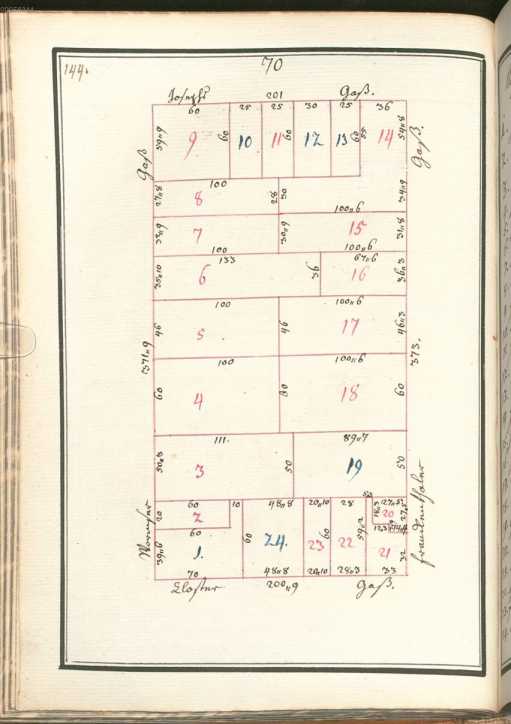 144.
70
Josephs 201 Gaß.
60 25 25 30 25 36
59"9 9 60 10 11 60 12 13 60 55 14 54"8
Gaß Gaß.
100
27"8 8 28 30 34"9
100"6
32"9 7 30"9 15 31"8
100 100"6
133 67"6
35"10 6 36 16 36"3
100 100"6
46 5 46 17 46"3
371"9 373.
100 100"6
60 4 80 18 60
111. 89"7
50"8 3 50 19 50
Wormser Franckenthaler
60 10 48"8 20"10 28
20 2 20
60
39"6 1. 60 24. 23 60 22 59"2 21 32
70 48"8 20"10 28"3 33
Closter 200"9 Gaß.